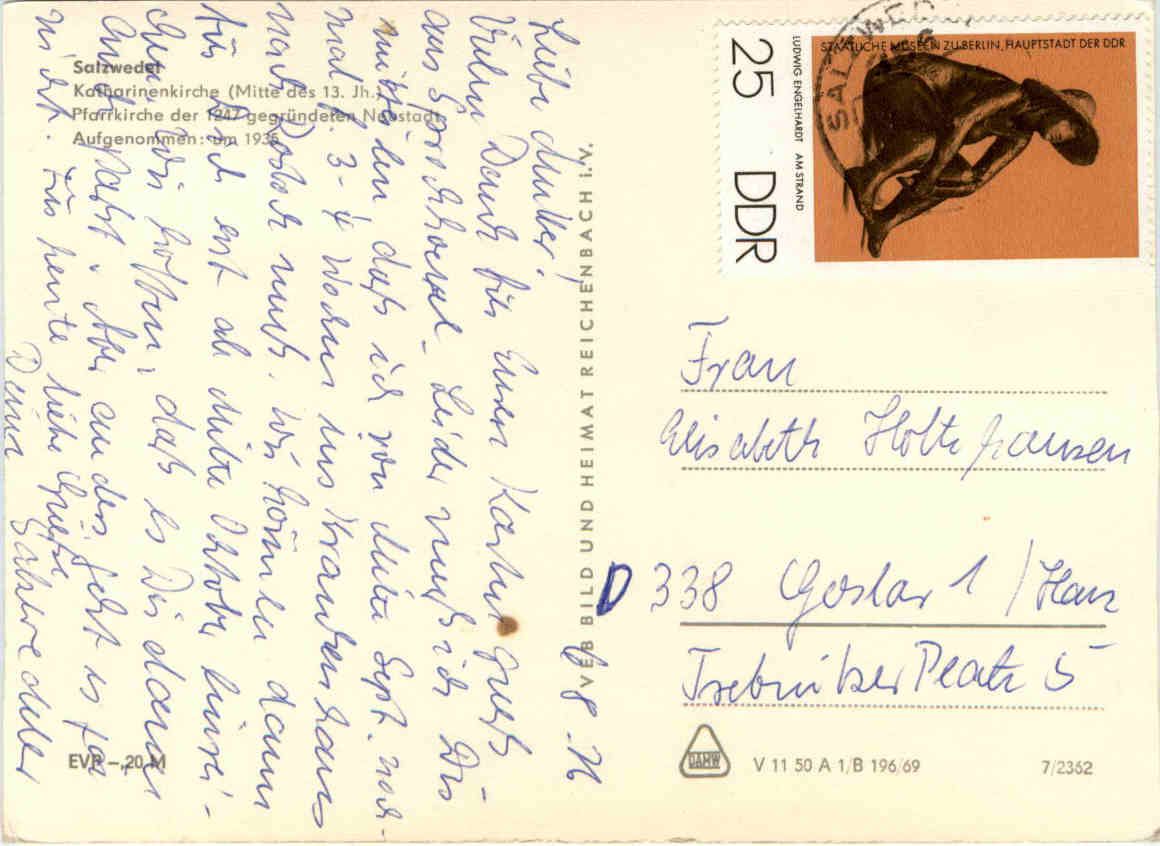 Salzwedel
Katharinenkirche (Mitte des 13. Jh.)
Pfarrkirche der 1247 gegründeten Neustadt
Aufgenommen: um 1935
Liebe Mutter!
Vielen Dank für Euren Kartengruß
aus Sporckhorst. Leider muß ich Dir
mitteilen daß ich von Mitte Sept. noch-
mal 3-4 Wochen ins Krankenhaus
nach Rostock muß. Wir können dann
für Dich erst ab Mitte Oktober einrei-
chen. Wir hoffen, daß es Dir dann
auch paßt. Aber anders geht es ja
nicht. Für heute liebe Grüße
Deine Salzwedeler
8. 71
VEB BILD UND HEIMAT REICHENBACH i.V.
EVP -,20 M
25 DDR
LUDWIG ENGELHARDT AM STRAND
STAATLICHE MUSEEN ZU BERLIN, HAUPTSTADT DER DDR
SALZWEDEL
Frau
Elisabeth Holtzhausen
D 338 Goslar 1 / Harz
Trebnitzer Platz 5
DAMW
V 11 50 A 1/B 196/69
7/2362